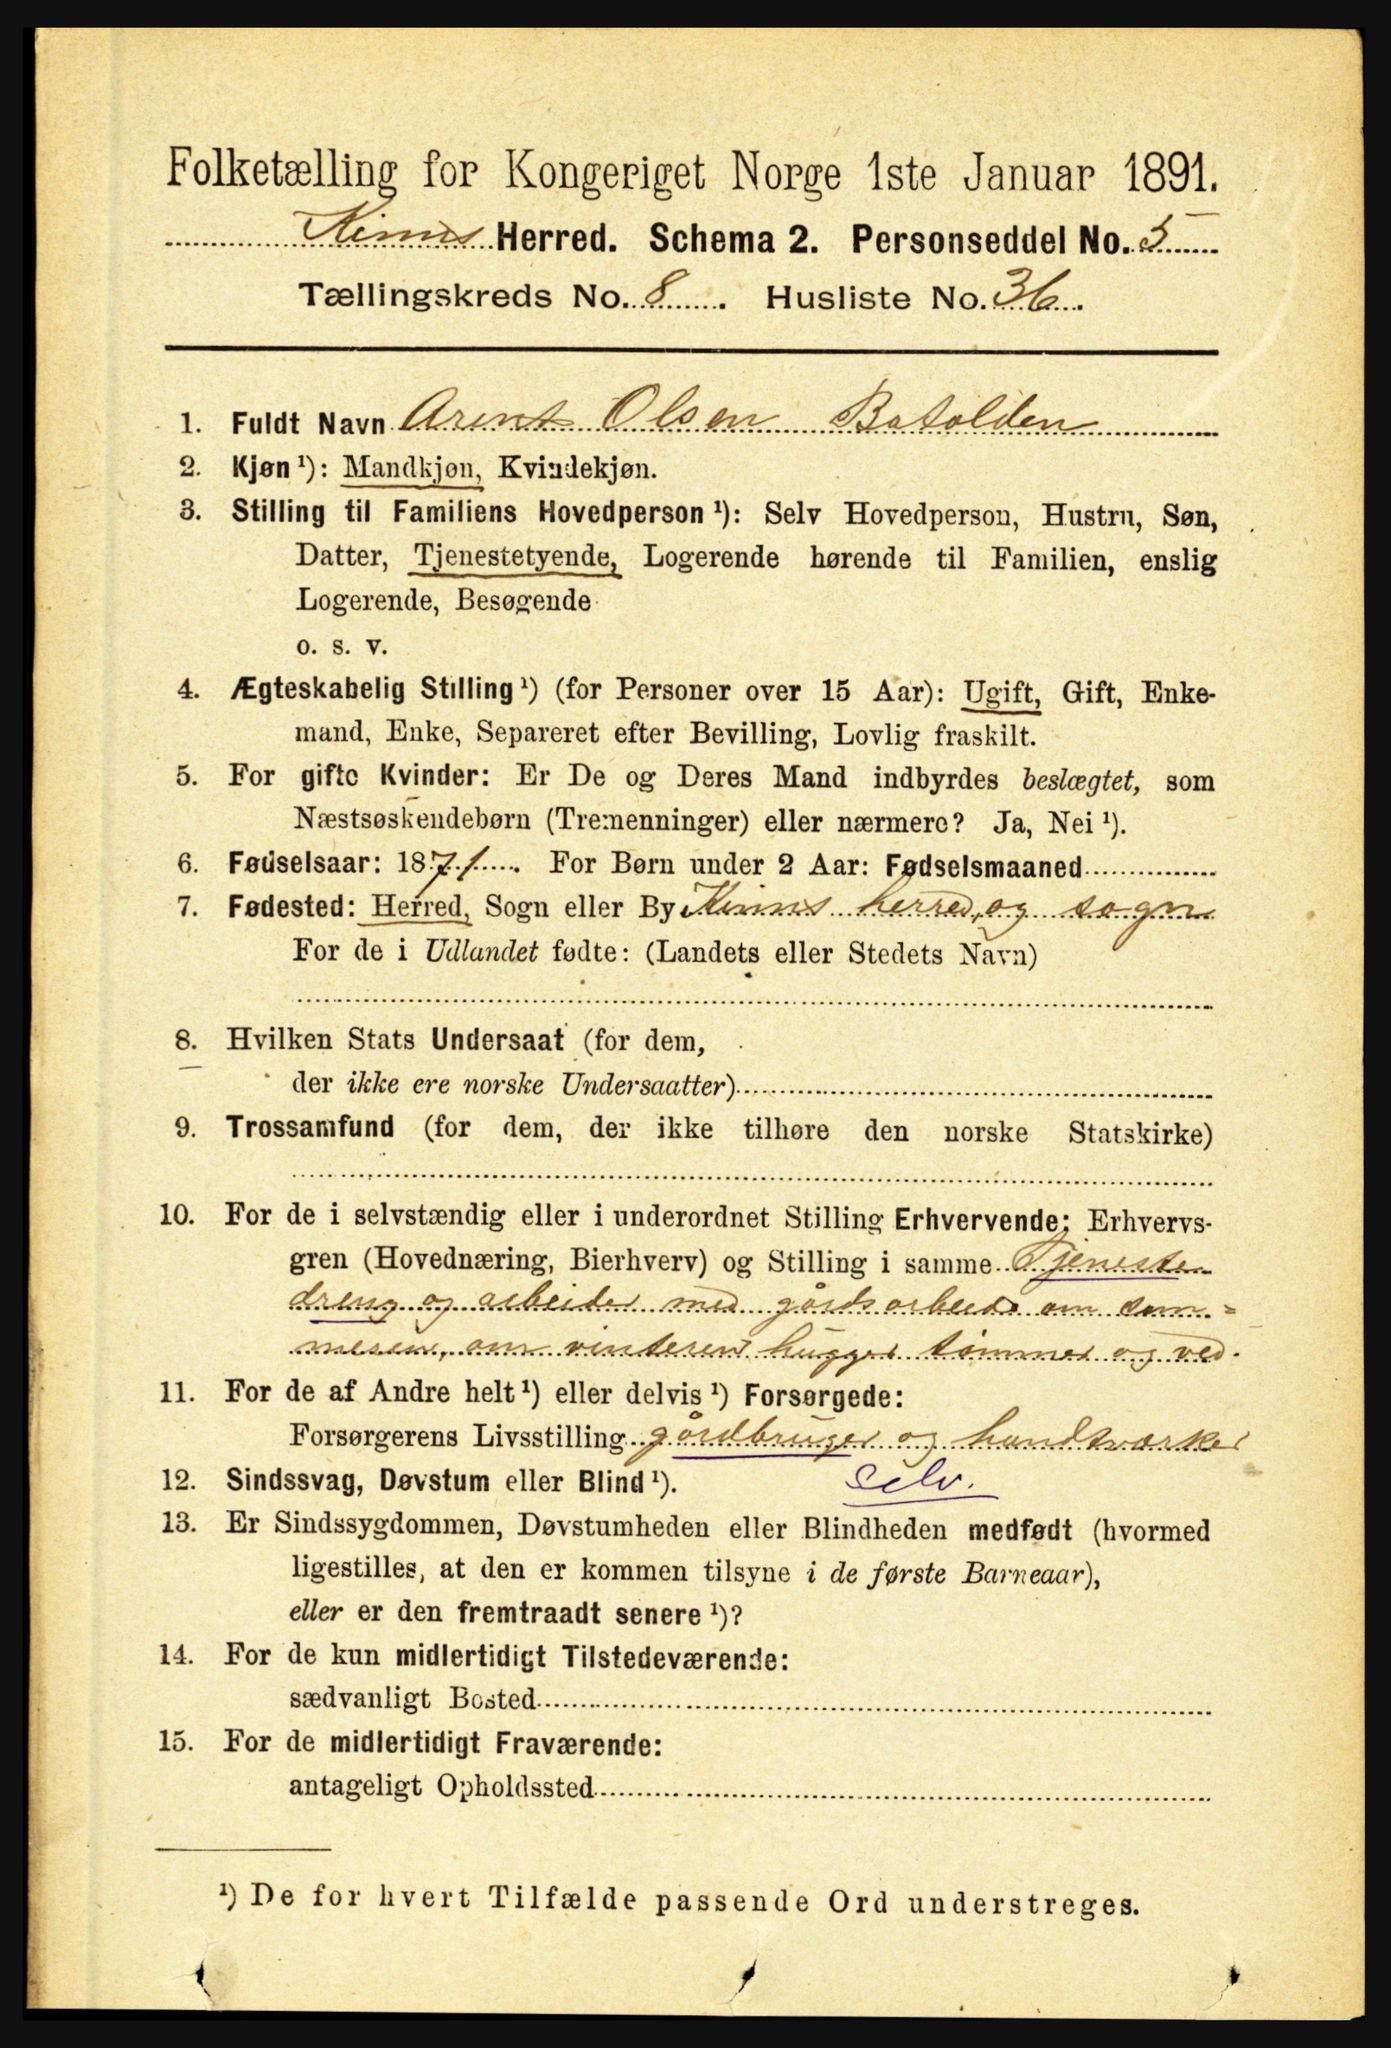 Folketælling for Kongeriget Norge 1ste Januar 1891.
Kinns Herred. Schema 2. Personseddel No. 5
Tællingskreds No. 8. Husliste No. 36.
1. Fuldt Navn Arent Olsen Batalden
2. Kjøn ¹): Mandkjøn, Kvindekjøn.
3. Stilling til Familiens Hovedperson ¹): Selv Hovedperson, Hustru, Søn,
Datter, Tjenestetyende, Logerende hørende til Familien, enslig
Logerende, Besøgende
o. s. v.
4. Ægteskabelig Stilling ¹) (for Personer over 15 Aar): Ugift, Gift, Enke-
mand, Enke, Separeret efter Bevilling, Lovlig fraskilt.
5. For gifte Kvinder: Er De og Deres Mand indbyrdes beslægtet, som
Næstsøskendebørn (Tremenninger) eller nærmere? Ja, Nei ¹).
6. Fødselsaar: 1871. For Børn under 2 Aar: Fødselsmaaned
7. Fødested: Herred, Sogn eller By Kinns herred, og sogn
For de i Udlandet fødte: (Landets eller Stedets Navn)
8. Hvilken Stats Undersaat (for dem,
der ikke ere norske Undersaatter)
9. Trossamfund (for dem, der ikke tilhøre den norske Statskirke)
10. For de i selvstændig eller i underordnet Stilling Erhvervende: Erhvervs-
gren (Hovednæring, Bierhverv) og Stilling i samme Tjeneste
dreng og arbeider med gårdsarbeide om som=
meren, om vinteren hugger tømmer og ved.
11. For de af Andre helt ¹) eller delvis ¹) Forsørgede:
Forsørgerens Livsstilling gårdbruger og handtværker
12. Sindssvag, Døvstum eller Blind ¹). selv.
13. Er Sindssygdommen, Døvstumheden eller Blindheden medfødt (hvormed
ligestilles, at den er kommen tilsyne i de første Barneaar),
eller er den fremtraadt senere ¹)?
14. For de kun midlertidigt Tilstedeværende:
sædvanligt Bosted
15. For de midlertidigt Fraværende:
antageligt Opholdssted
¹) De for hvert Tilfælde passende Ord understreges.